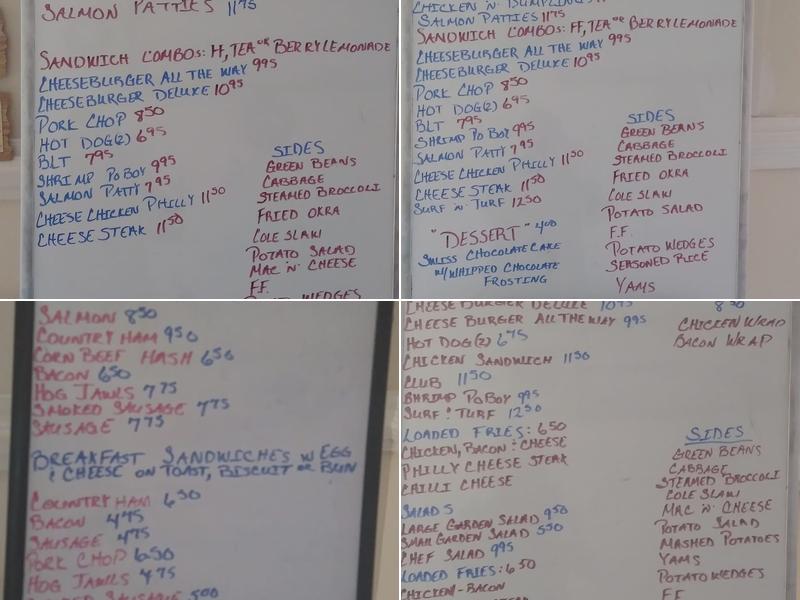 SALMON PATTIES 11 75
SANDWICH COMBOS: FF, TEA OR BERRY LEMONADE
CHEESEBURGER ALL THE WAY 9 95
CHEESEBURGER DELUXE 10 95
PORK CHOP 8 50
HOT DOG(2) 6 95
BLT 7 95
SHRIMP PO BOY 9 95
SALMON PATTY 7 95
CHEESE CHICKEN PHILLY 11 50
CHEESE STEAK 11 50
SIDES
GREEN BEANS
CABBAGE
STEAMED BROCCOLI
FRIED OKRA
COLE SLAW
POTATO SALAD
MAC 'N' CHEESE
F.F.
WEDGES
CHICKEN 'N' DUMPLINGS
SALMON PATTIES 11 75
SANDWICH COMBOS: FF, TEA OR BERRY LEMONADE
CHEESEBURGER ALL THE WAY 9 95
CHEESEBURGER DELUXE 10 95
PORK CHOP 8 50
HOT DOG(2) 6 95
BLT 7 95
SHRIMP PO BOY 9 95
SALMON PATTY 7 95
CHEESE CHICKEN PHILLY 11 50
CHEESE STEAK 11 50
SURF 'N' TURF 12 50
"DESSERT" 4 00
SWISS CHOCOLATE CAKE
W/WHIPPED CHOCOLATE
FROSTING
SIDES
GREEN BEANS
CABBAGE
STEAMED BROCCOLI
FRIED OKRA
COLE SLAW
POTATO SALAD
F.F.
POTATO WEDGES
SEASONED RICE
YAMS
SALMON 8 50
COUNTRY HAM 9 50
CORN BEEF HASH 6 50
BACON 6 50
HOG JAWLS 7 75
SMOKED SAUSAGE 7 75
SAUSAGE 7 75
BREAKFAST SANDWICHES W EGG
& CHEESE ON TOAST, BISCUIT OR BUN
COUNTRY HAM 6 50
BACON 4 75
SAUSAGE 4 75
PORK CHOP 6 50
HOG JAWLS 4 75
SAUSAGE 5 00
CHEESE BURGER DELUXE 10 95
CHEESE BURGER ALL THE WAY 9 95
HOT DOG(2) 6 75
CHICKEN SANDWICH 11 50
CLUB 11 50
SHRIMP PO BOY 9 95
SURF & TURF 12 50
LOADED FRIES: 6 50
CHICKEN, BACON & CHEESE
PHILLY CHEESE STEAK
CHILLI CHEESE
SALADS
LARGE GARDEN SALAD 9 50
SMALL GARDEN SALAD 5 50
CHEF SALAD 9 95
LOADED FRIES: 6 50
CHICKEN-BACON
8 50
CHICKEN WRAP
BACON WRAP
SIDES
GREEN BEANS
CABBAGE
STEAMED BROCCOLI
COLE SLAW
MAC 'N' CHEESE
POTATO SALAD
MASHED POTATOES
YAMS
POTATO WEDGES
F.F